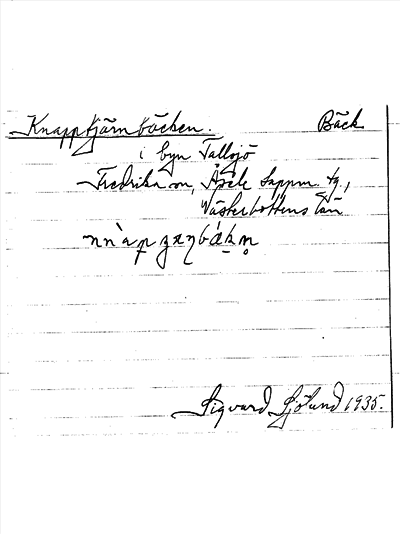 Knapptjärnbäcken. Bäck
i byn Tallsjö
Fredrika sn, Åsele lappm. tg.,
Västerbottens län
Sigvard Sjölund 1935.